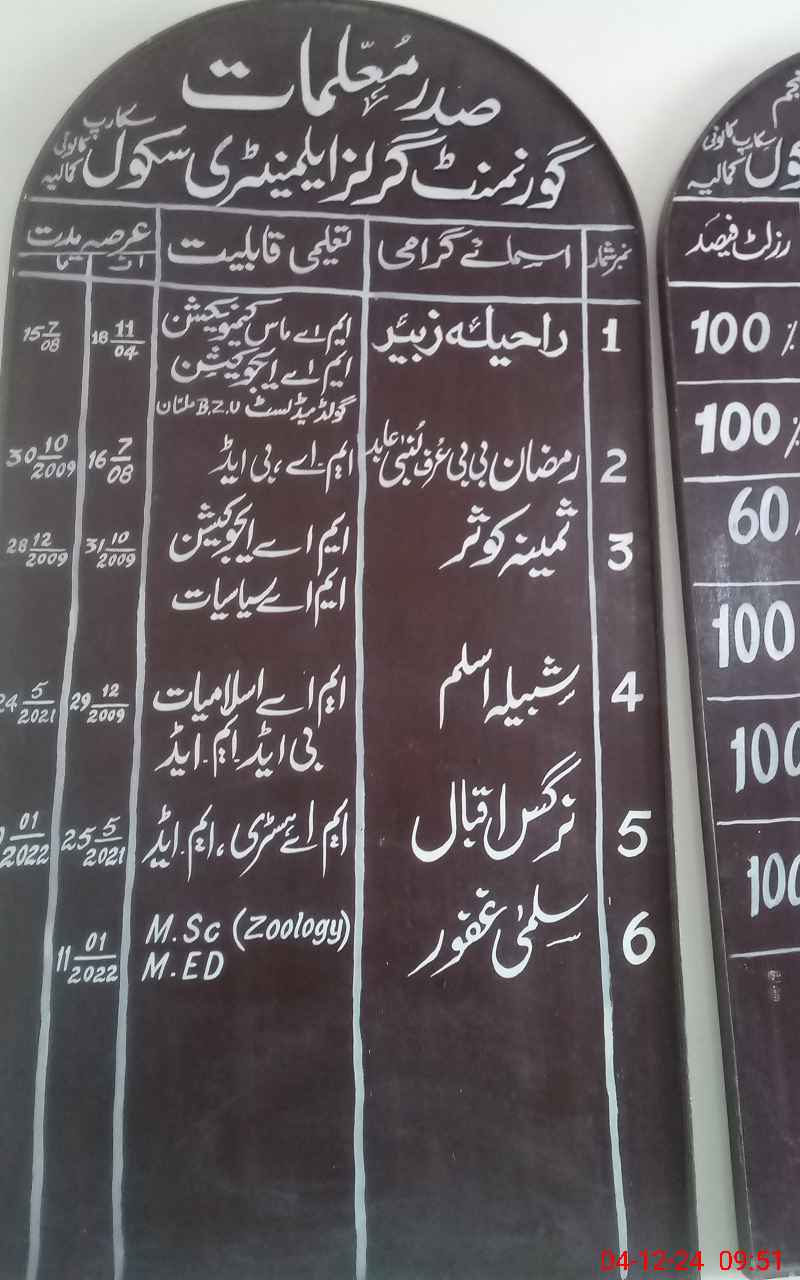 صدر معلمات
گورنمنٹ گرلز ایلیمنٹری سکول سکارپ کالونی کمالیہ
نمبر شمار اسمائے گرامی تعلیمی قابلیت عرصہ
از تا
1 راحیلہ زبیر ایم اے ماس کمیونیکیشن 18 11/04 15 7/08
ایم اے ایجوکیشن
گولڈ میڈلسٹ B.Z.U ملتان
2 رمضان بی بی عرف لبنیٰ عابد ایم۔اے، بی ایڈ 16 7/08 30 10/2009
3 ثمینہ کوثر ایم اے ایجوکیشن 31 10/2009 28 12/2009
ایم اے سیاسیات
4 شبیلہ اسلم ایم اے اسلامیات 29 12/2009 24 5/2021
بی ایڈ۔ایم۔ایڈ
5 نرگس اقبال ایم اے ہسٹری، ایم۔ایڈ 25 5/2021 01/2022
6 سلمیٰ غفور M.Sc (Zoology) 11 01/2022
M.ED
سکارپ کالونی
کمالیہ
رزلٹ فیصد
100 %
100 %
60
100
100
100
04-12-24 09:51